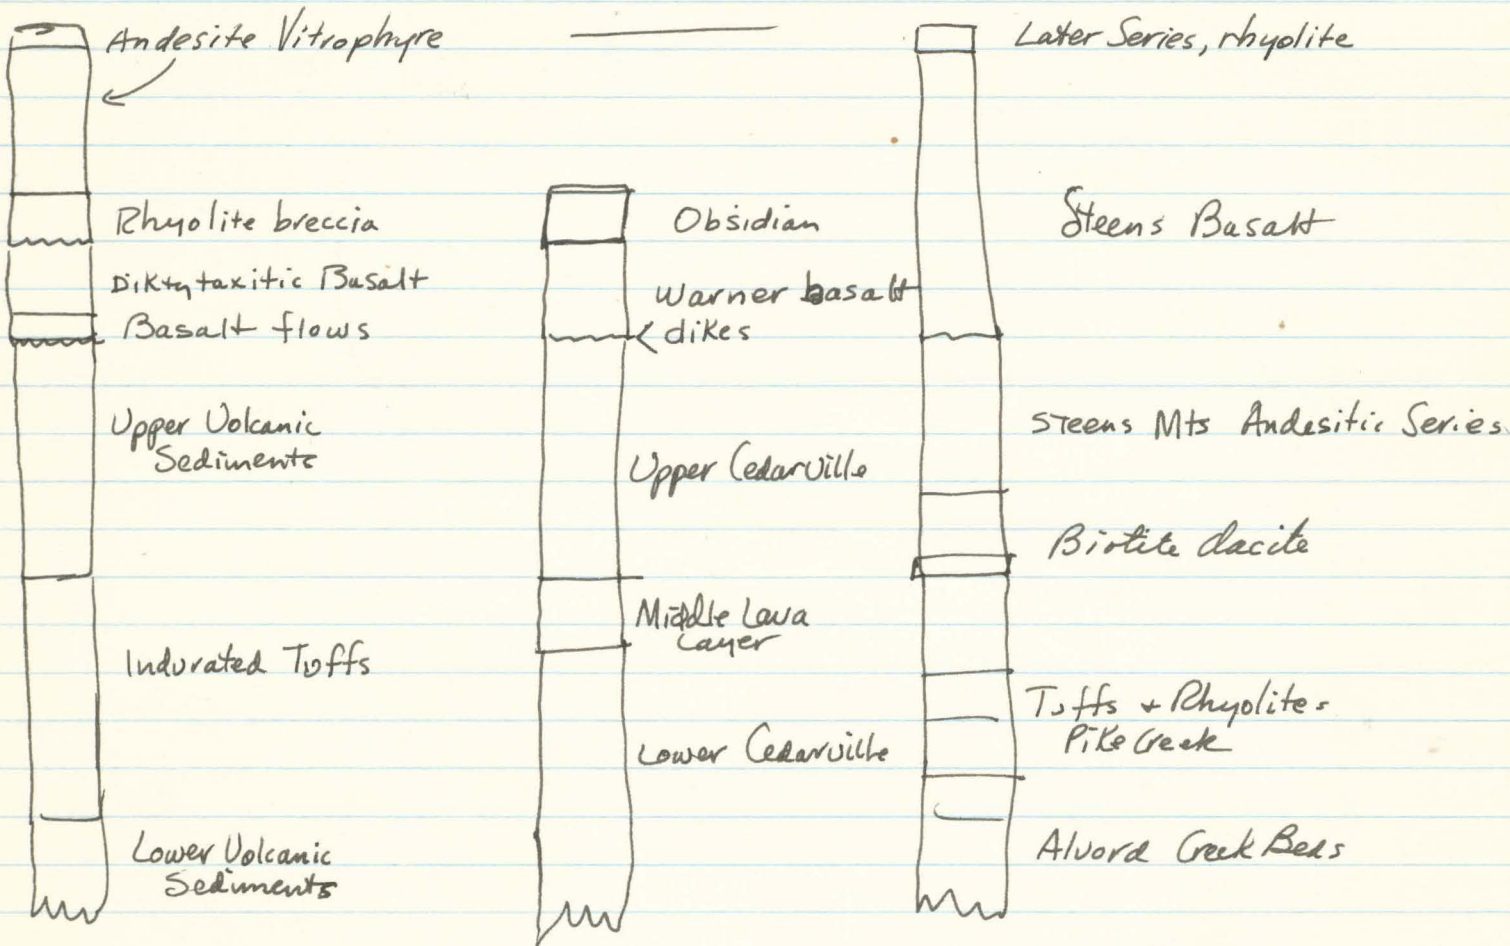 Andesite Vitrophyre
Rhyolite breccia
Diktytaxitic Basalt
Basalt flows
Upper Volcanic
Sediments
Indurated Tuffs
Lower Volcanic
Sediments
Obsidian
Warner basalt
dikes
Upper Cedarville
Middle Lava
Layer
Lower Cedarville
Later Series, rhyolite
Steens Basalt
Steens Mts Andesitic Series
Biotite dacite
Tuffs + Rhyolite -
Pike Creek
Alvord Creek Beds